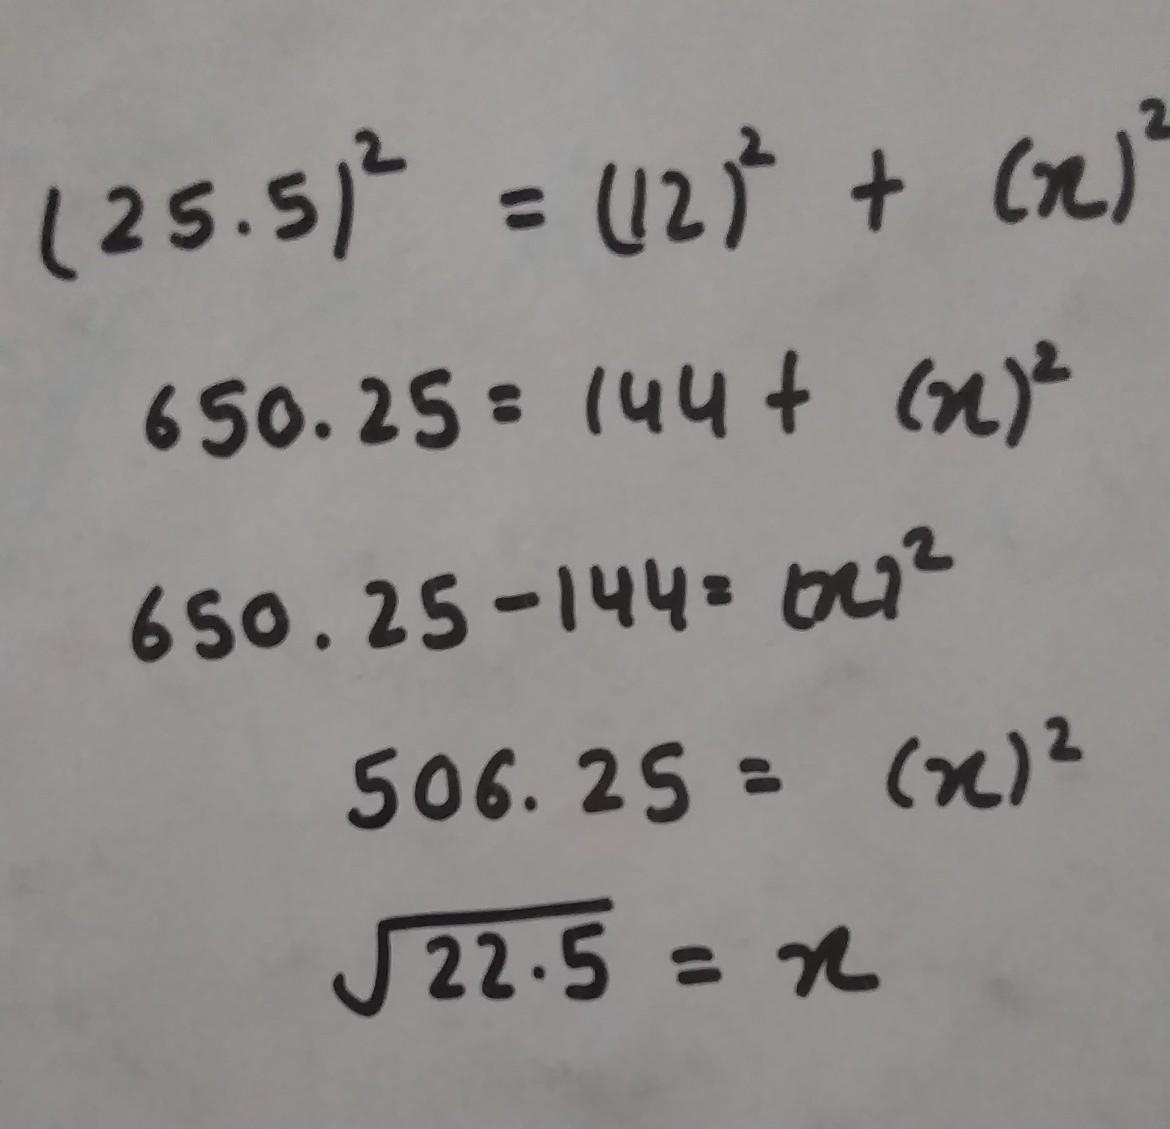 (25.5)² = (12)² + (x)²
650.25 = 144 + (x)²
650.25 - 144 = (x)²
506.25 = (x)²
√22.5 = x